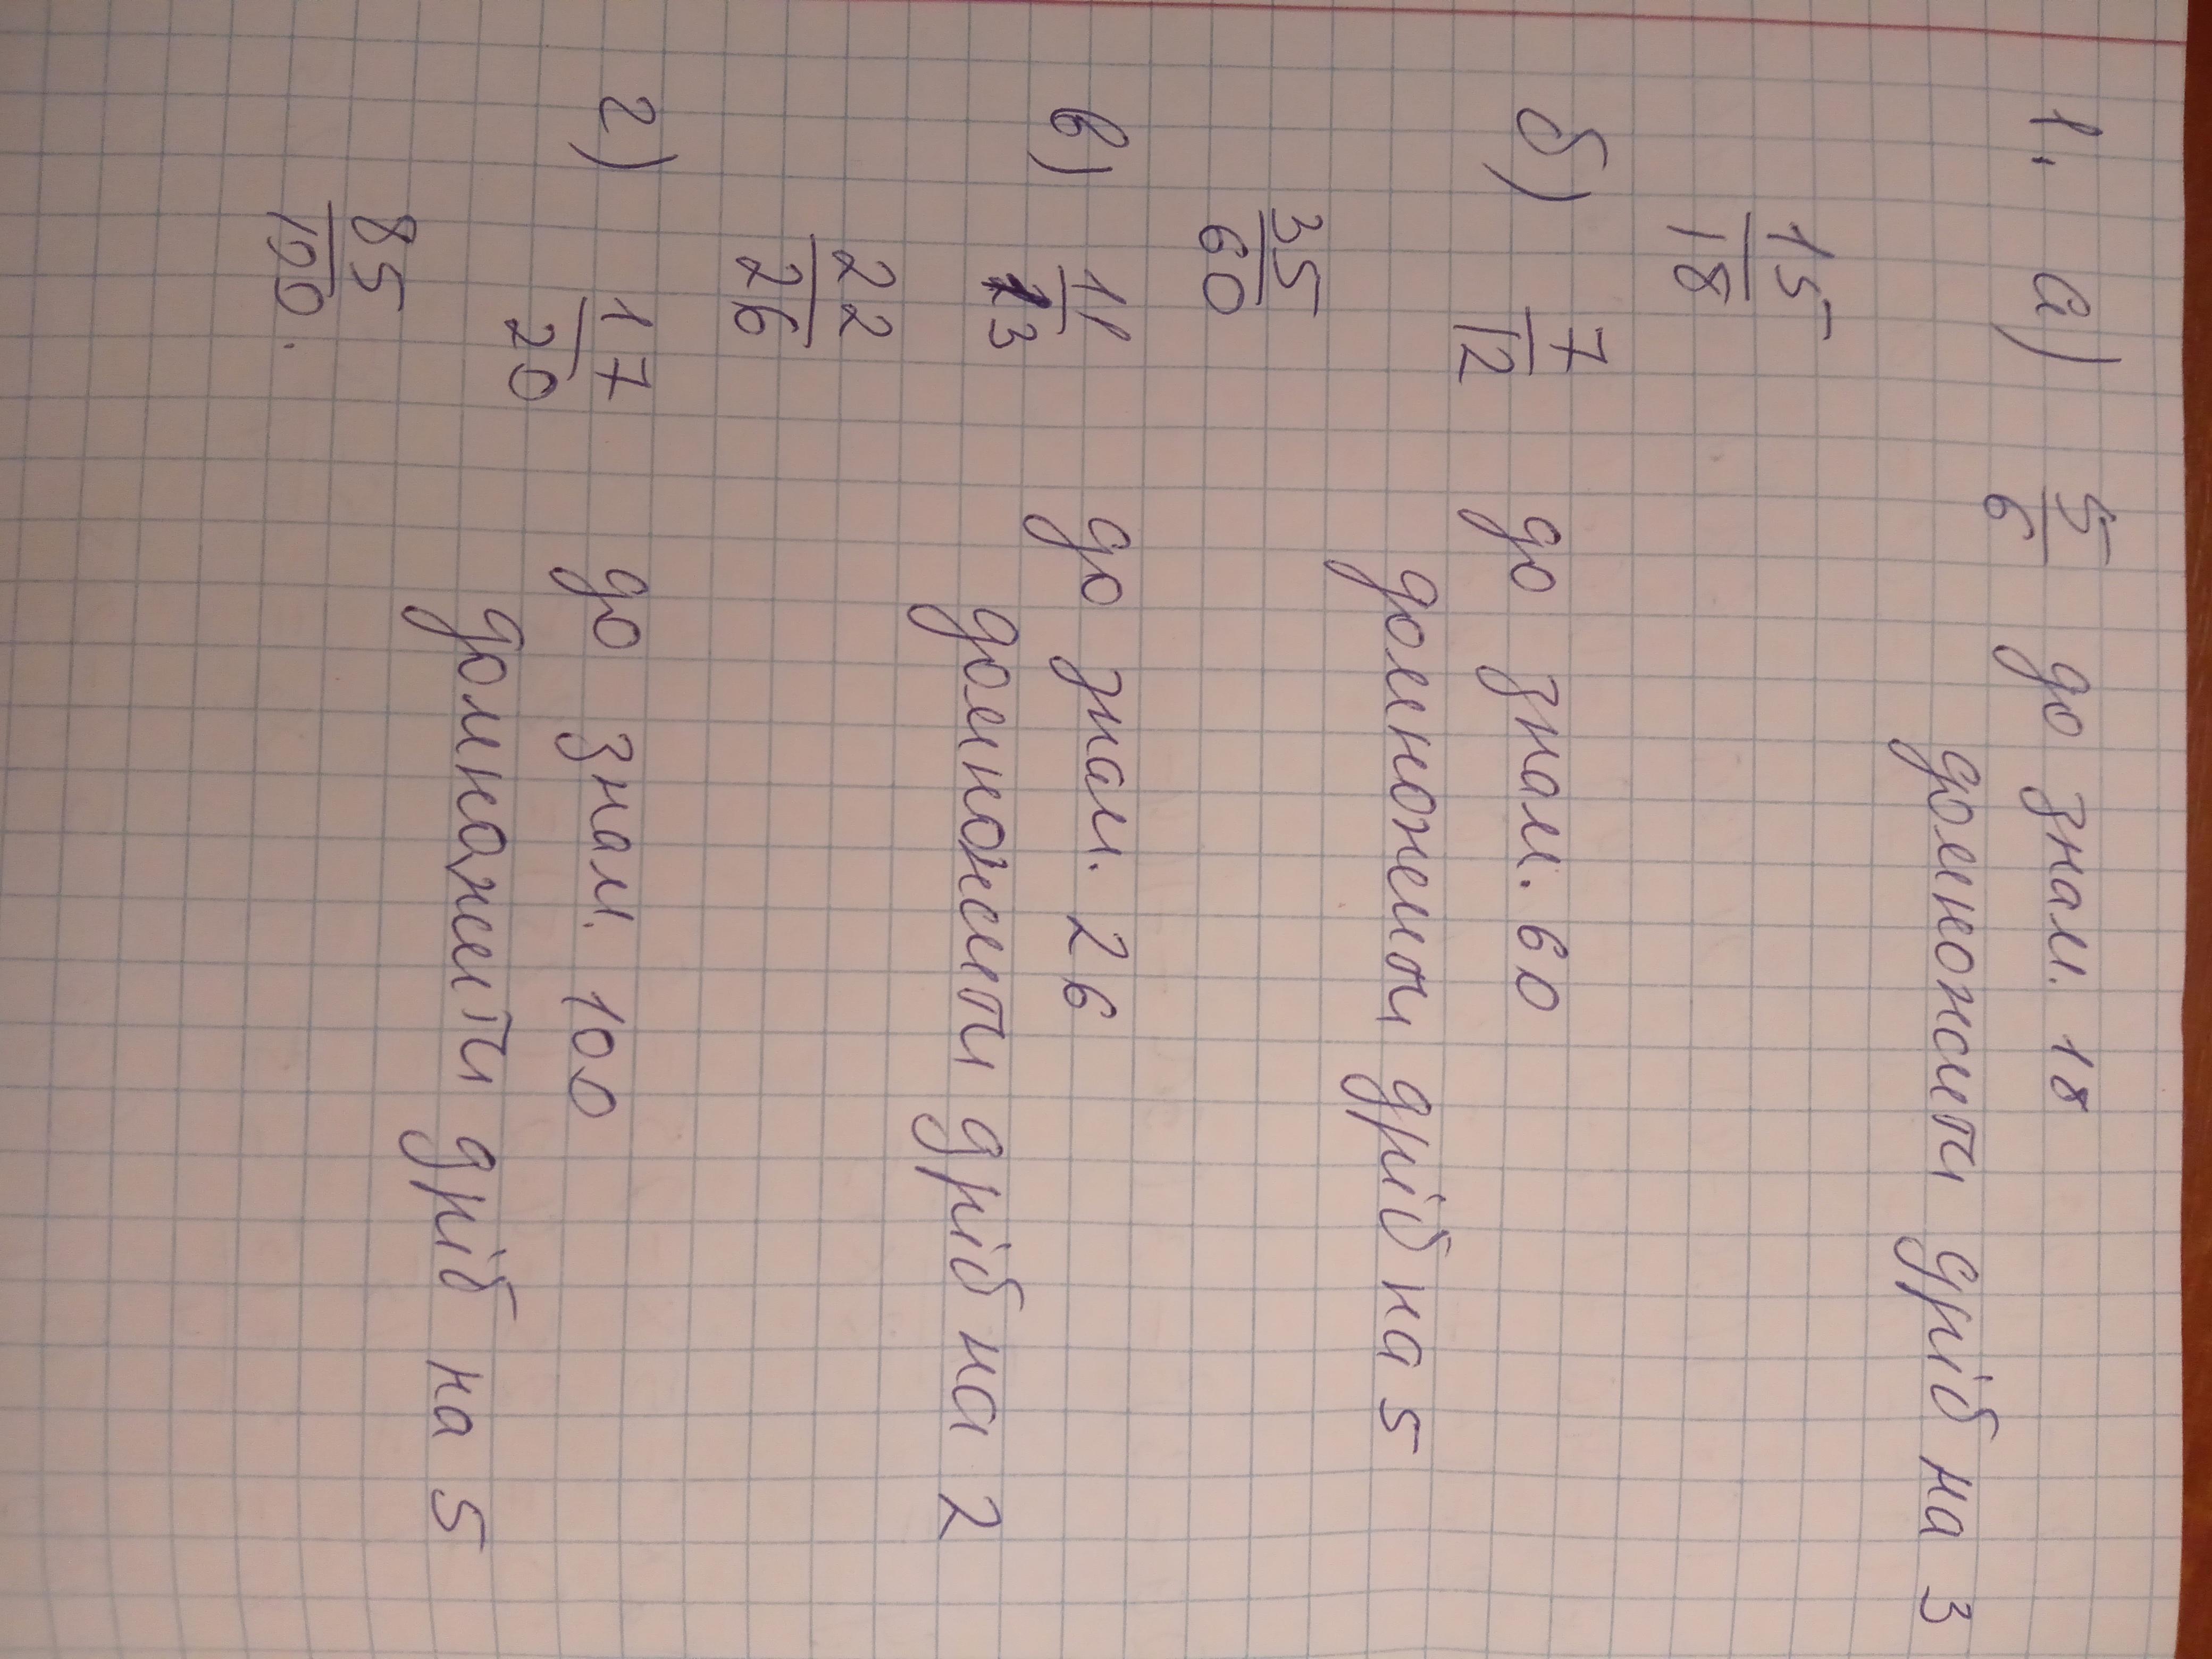 1. а) 5/6 до знам. 18
домножити дріб на 3
15/18
б) 7/12 до знам. 60
домножити дріб на 5
35/60
в) 11/13 до знам. 26
домножити дріб на 2
22/26
г) 17/20 до знам. 100
домножити дріб на 5
85/100.